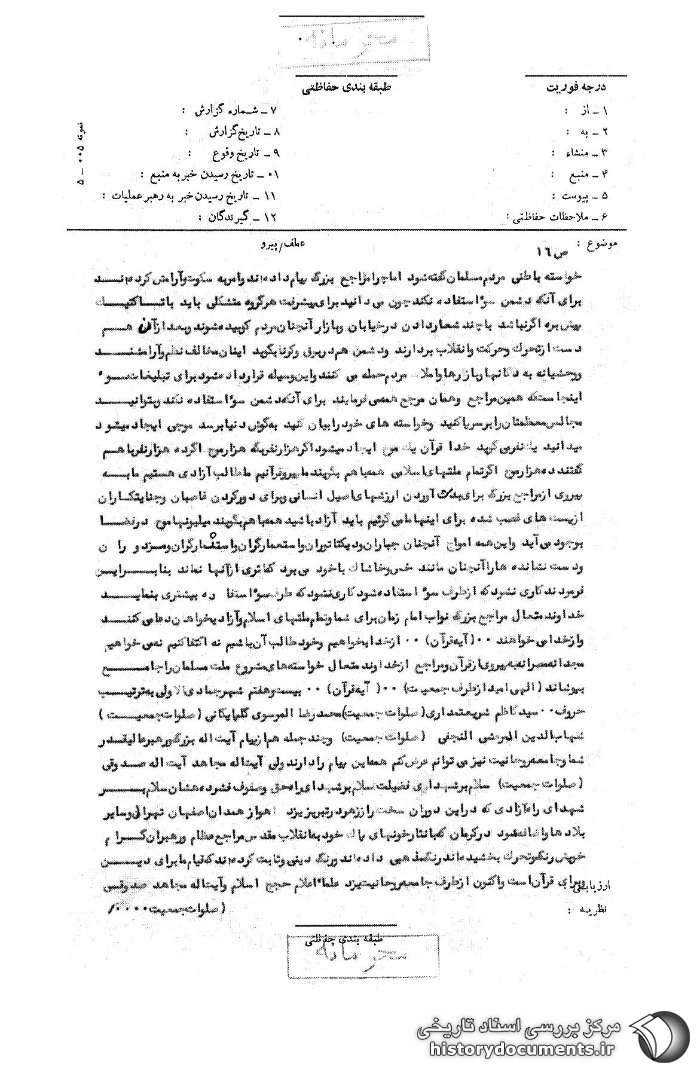 محرمانه
درجه فوریت
طبقه بندی حفاظتی
۱ ـ از :
۲ ـ به :
۳ ـ منشاء :
۴ ـ منبع :
۵ ـ پیوست :
۶ ـ ملاحظات حفاظتی :
۷ ـ شماره گزارش :
۸ ـ تاریخ گزارش :
۹ ـ تاریخ وقوع :
۱۰ ـ تاریخ رسیدن خبر به منبع :
۱۱ ـ تاریخ رسیدن خبر به رهبر عملیات :
۱۲ ـ گیرندگان :
نمونه ۰۰۵ ـ ۵
موضوع :
عطف/پیرو
ص ۱۶
خواسته باطنی مردم مسلمان گفته شود اما چرا مراجع بزرگ پیام داده اند وامر به سکوت وآرامش کرده اند
برای آنکه دشمن سوء استفاده نکند چون می دانید برای پیشرفت هرگروه متشکلی باید باتاکتیک
پیش بره اگر نباشد با چند شعار دادن درخیابان وبازار آنچنان مردم کوبیده شوند وبعد از آن هم
دست از تحرک وحرکت وانقلاب بردارند ودشمن هم در بوق وکرنا بگوید اینان مخالف نظم وآرامشند
ووحشیانه به دکانها وبازارها واملاک مردم حمله می کنند واین وسیله قرار داده شود برای تبلیغات سوء
اینجاست که همین مراجع وهمان مرجع همه می فرمایند برای آنکه دشمن سوء استفاده نکند وبتوانید
مجالس معظمتان را برسرپا کنید وخواسته های خود را بیان کنید به گوش دنیا برسد موجی ایجاد میشود
میدانید یک نفر می گوید خدا قرآن یک موج ایجاد میشود اگر هزار نفر بگه هزار موج اگر ده هزار نفر باهم
گفتند ده هزار موج اگر تمام ملتهای اسلامی همه باهم بگویند ما پیرو قرآنیم ما طالب آزادی هستیم ما به
پیروی از مراجع بزرگ برای بدست آوردن ارزشهای اصیل انسانی وبرای دور کردن غاصبان وجنایتکاران
از پست های غصب شده برای اینها ما می گوئیم باید آزاد باشید همه باهم بگویند میلیونها موج در فضا
بوجود می آید واین همه امواج آنچنان جباران ودیکتاتوران واستعمارگران واستثمارگران ومزدوران
ودست نشانده ها را آنچنان مانند خس وخاشاک باخود می برد که اثری از آنها نماند بنابراین
فرمودند کاری نشود که از طرف سوء استفاده شود کاری نشود که طرف سوء استفاده بیشتری بنماید
خداوند متعال مراجع بزرگ نواب امام زمان برای شما وتمام ملتهای اسلام وآزادیخواهان دعا می کنند
واز خدا می خواهند ۰۰ (آیه قرآن) ۰۰ از خدا بخواهیم وخود طالب آن باشیم نه اکتفا کنیم نه می خواهیم
مجدانه مصرانه به پیروی از قرآن ومراجع از خداوند متعال خواسته های مشروع ملت مسلمان را جامع
بپوشاند (الهی امید از طرف جمعیت) ۰۰ (آیه قرآن) ۰۰ بیست وهفتم شهر جمادی الاولی به ترتیب
حروف ۰۰ سید کاظم شریعتمداری (صلوات جمعیت) محمد رضا الموسوی گلپایگانی (صلوات جمعیت)
شهاب الدین المرعشی النجفی (صلوات جمعیت) وچند جمله هم از پیام آیت اله بزرگ ورهبر عالیقدر
شما وجامعه روحانیت نیز می توانم عرض کنم همه این پیام را دارند ولی آیت اله مجاهد آیت اله صدوقی
(صلوات جمعیت) سلام برشهدای فضیلت سلام برشهدای راه حق وصفوف فشرده شان سلام بر
شهدای راه آزادی که در این دوران سخت را در تبریز یزد اهواز همدان اصفهان تهران وسایر
بلادها واضافه شود درکرمان که با نثار خونهای پاک خود به انقلاب مقدس مراجع عظام ورهبران گرام
خویش رنگ وتحرک بخشیده اند رنگ مذهبی داده اند ورنگ دینی وثابت کرده اند که قیام ما برای دین
وبرای قرآن است واکنون از طرف جامعه روحانیت یزد علماء اعلام حجج اسلام وآیت اله مجاهد صدوقی
(صلوات جمعیت ۰۰۰۰/
ارزیابی :
نظریه :
طبقه بندی حفاظتی
محرمانه
مرکز بررسی اسناد تاریخی
historydocuments.ir